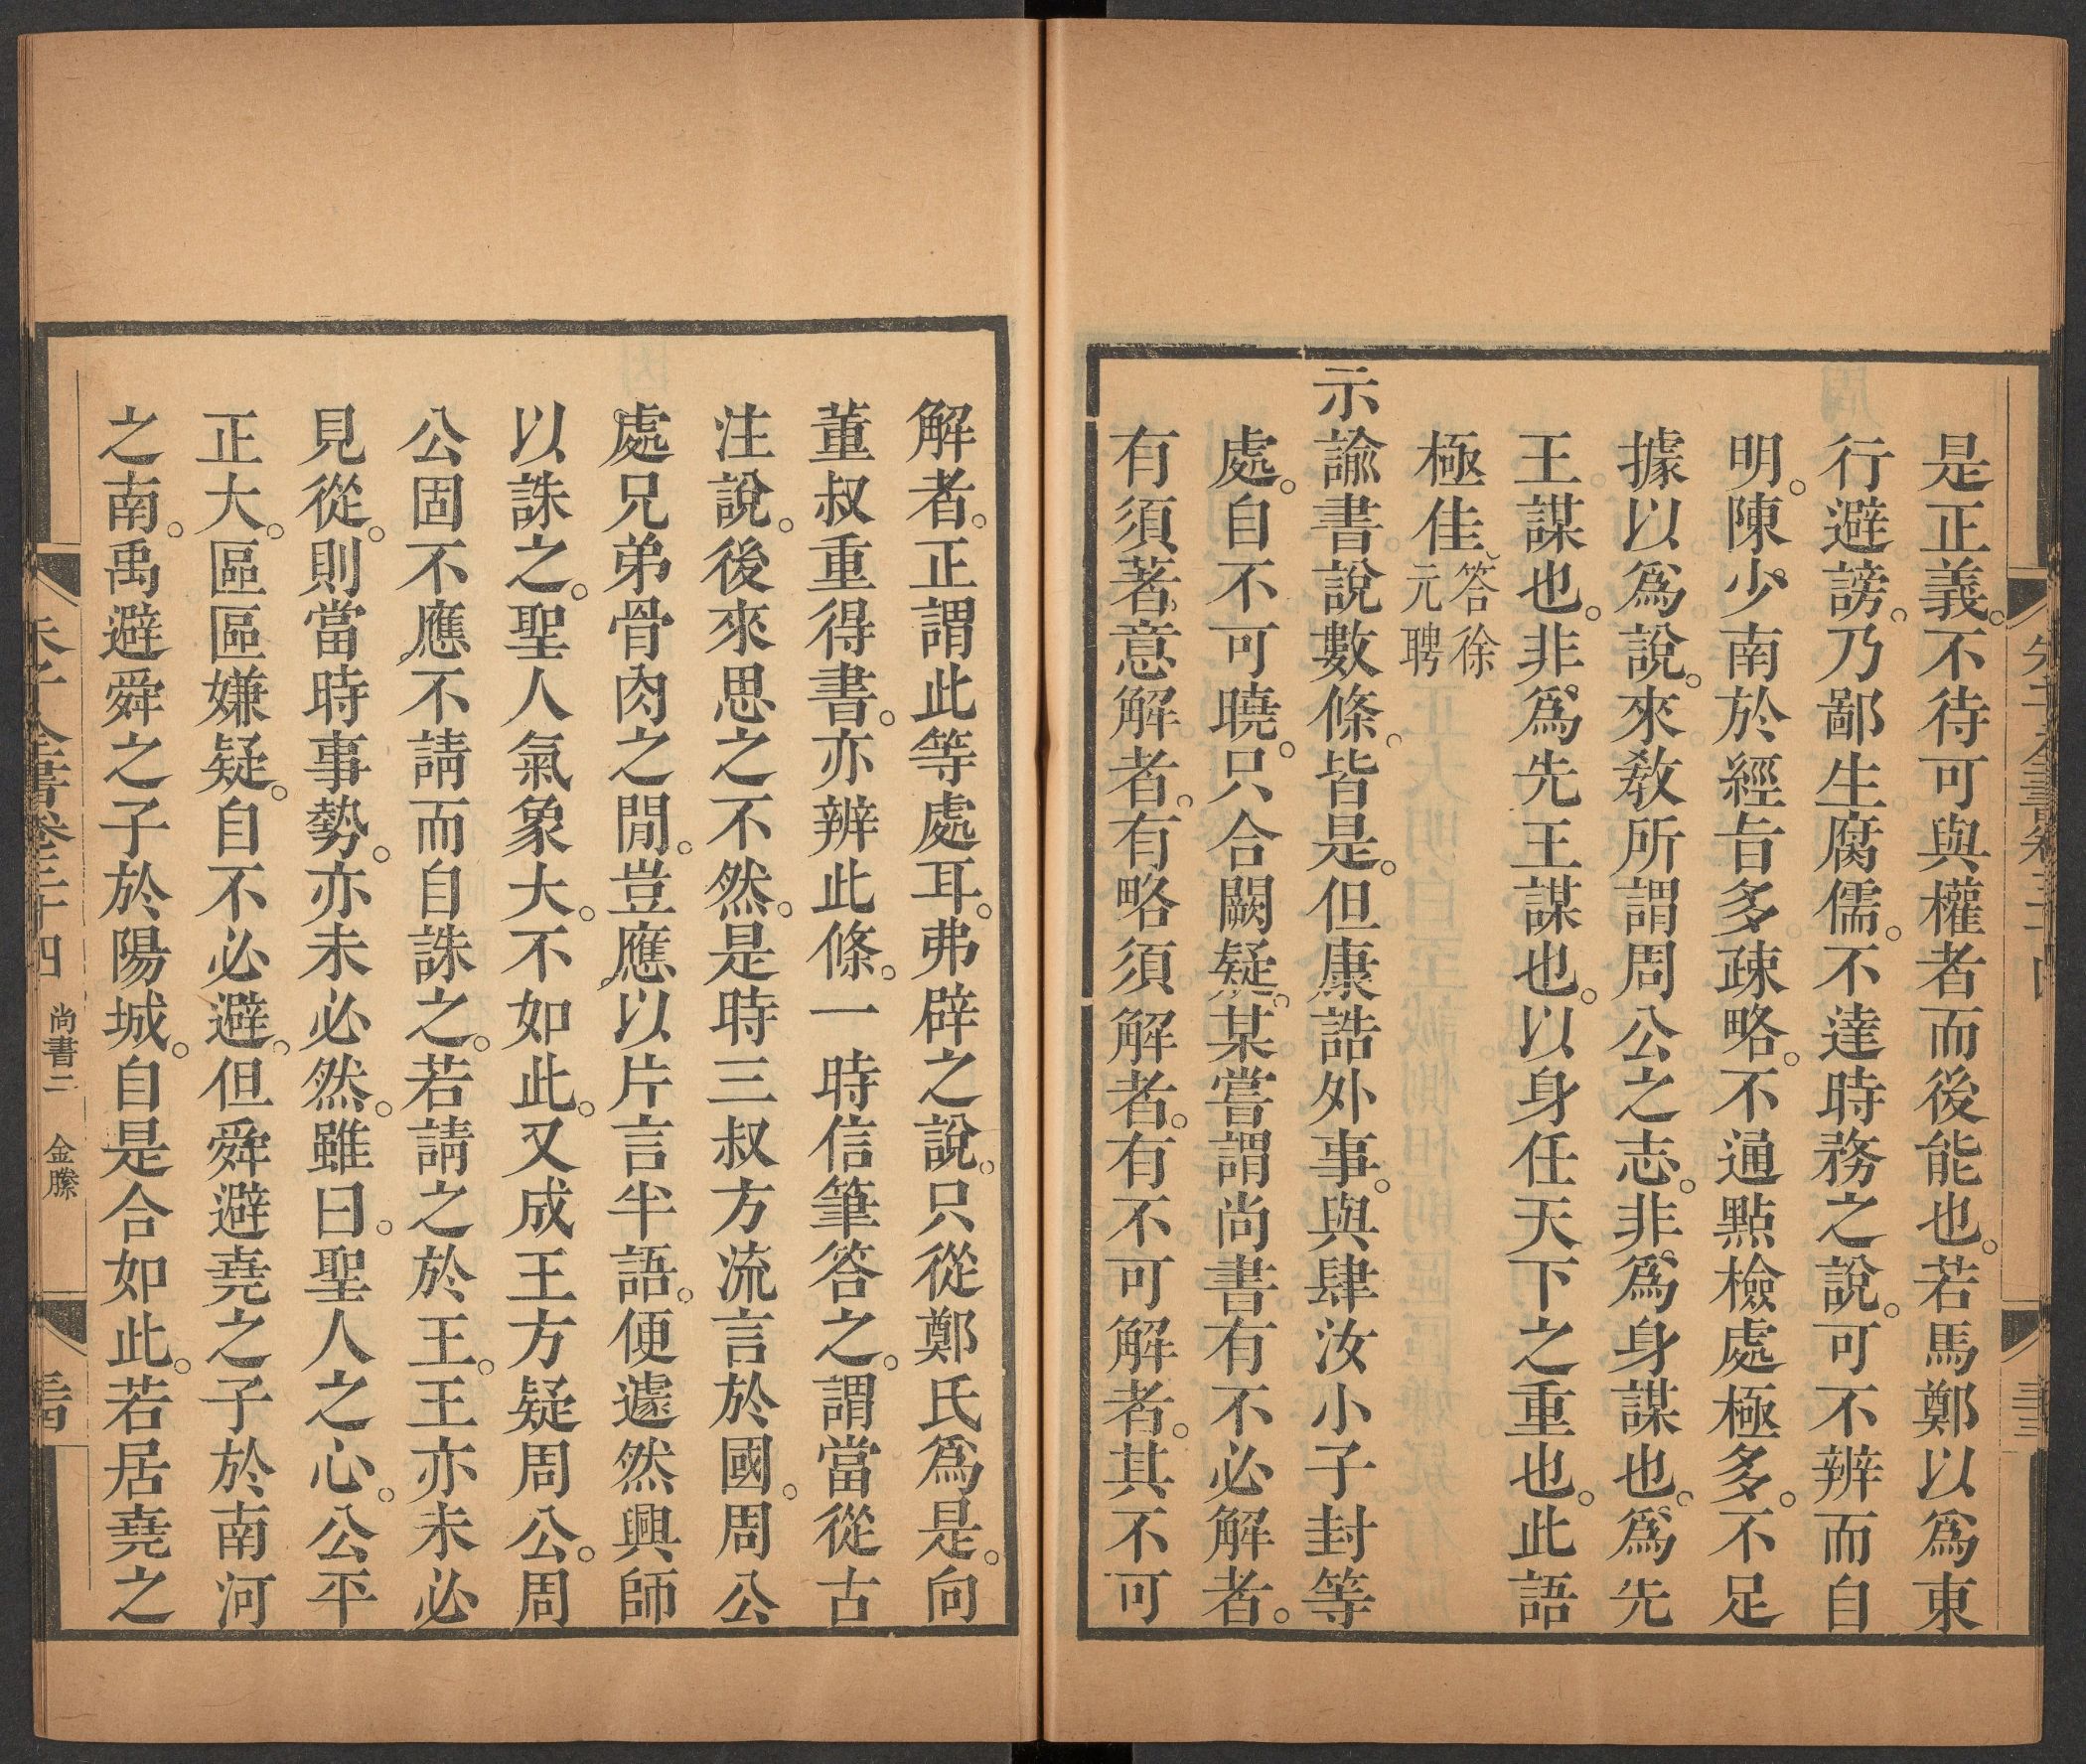 是正義。不待可與權者而後能也。若馬鄭以爲東
行避謗。乃鄙生腐儒。不達時務之說。可不辨而自
明。陳少南於經旨多疎略。不通點檢處極多。不足
據以爲說。來敎所謂周公之志。非爲身謀也。爲先
王謀也。非爲先王謀也。以身任天下之重也。此語
極佳。答徐元聘
示諭書說數條。皆是。但康誥外事。與肆汝小子封等
處。自不可曉。只合闕疑。某嘗謂尚書有不必解者。
有須著意解者。有略須解者。有不可解者。其不可
解者。正謂此等處耳。弗辟之說。只從鄭氏爲是。向
董叔重得書。亦辨此條。一時信筆答之。謂當從古
注說。後來思之不然。是時三叔方流言於國。周公
處兄弟骨肉之閒。豈應以片言半語。便遽然興師
以誅之。聖人氣象大。不如此。又成王方疑周公。周
公固不應不請而自誅之。若請之於王。王亦未必
見從。則當時事勢。亦未必然。雖曰。聖人之心。公平
正大。區區嫌疑。自不必避。但舜避堯之子於南河
之南。禹避舜之子於陽城。自是合如此。若居堯之
朱子全書卷三十四 尚書二 金縢